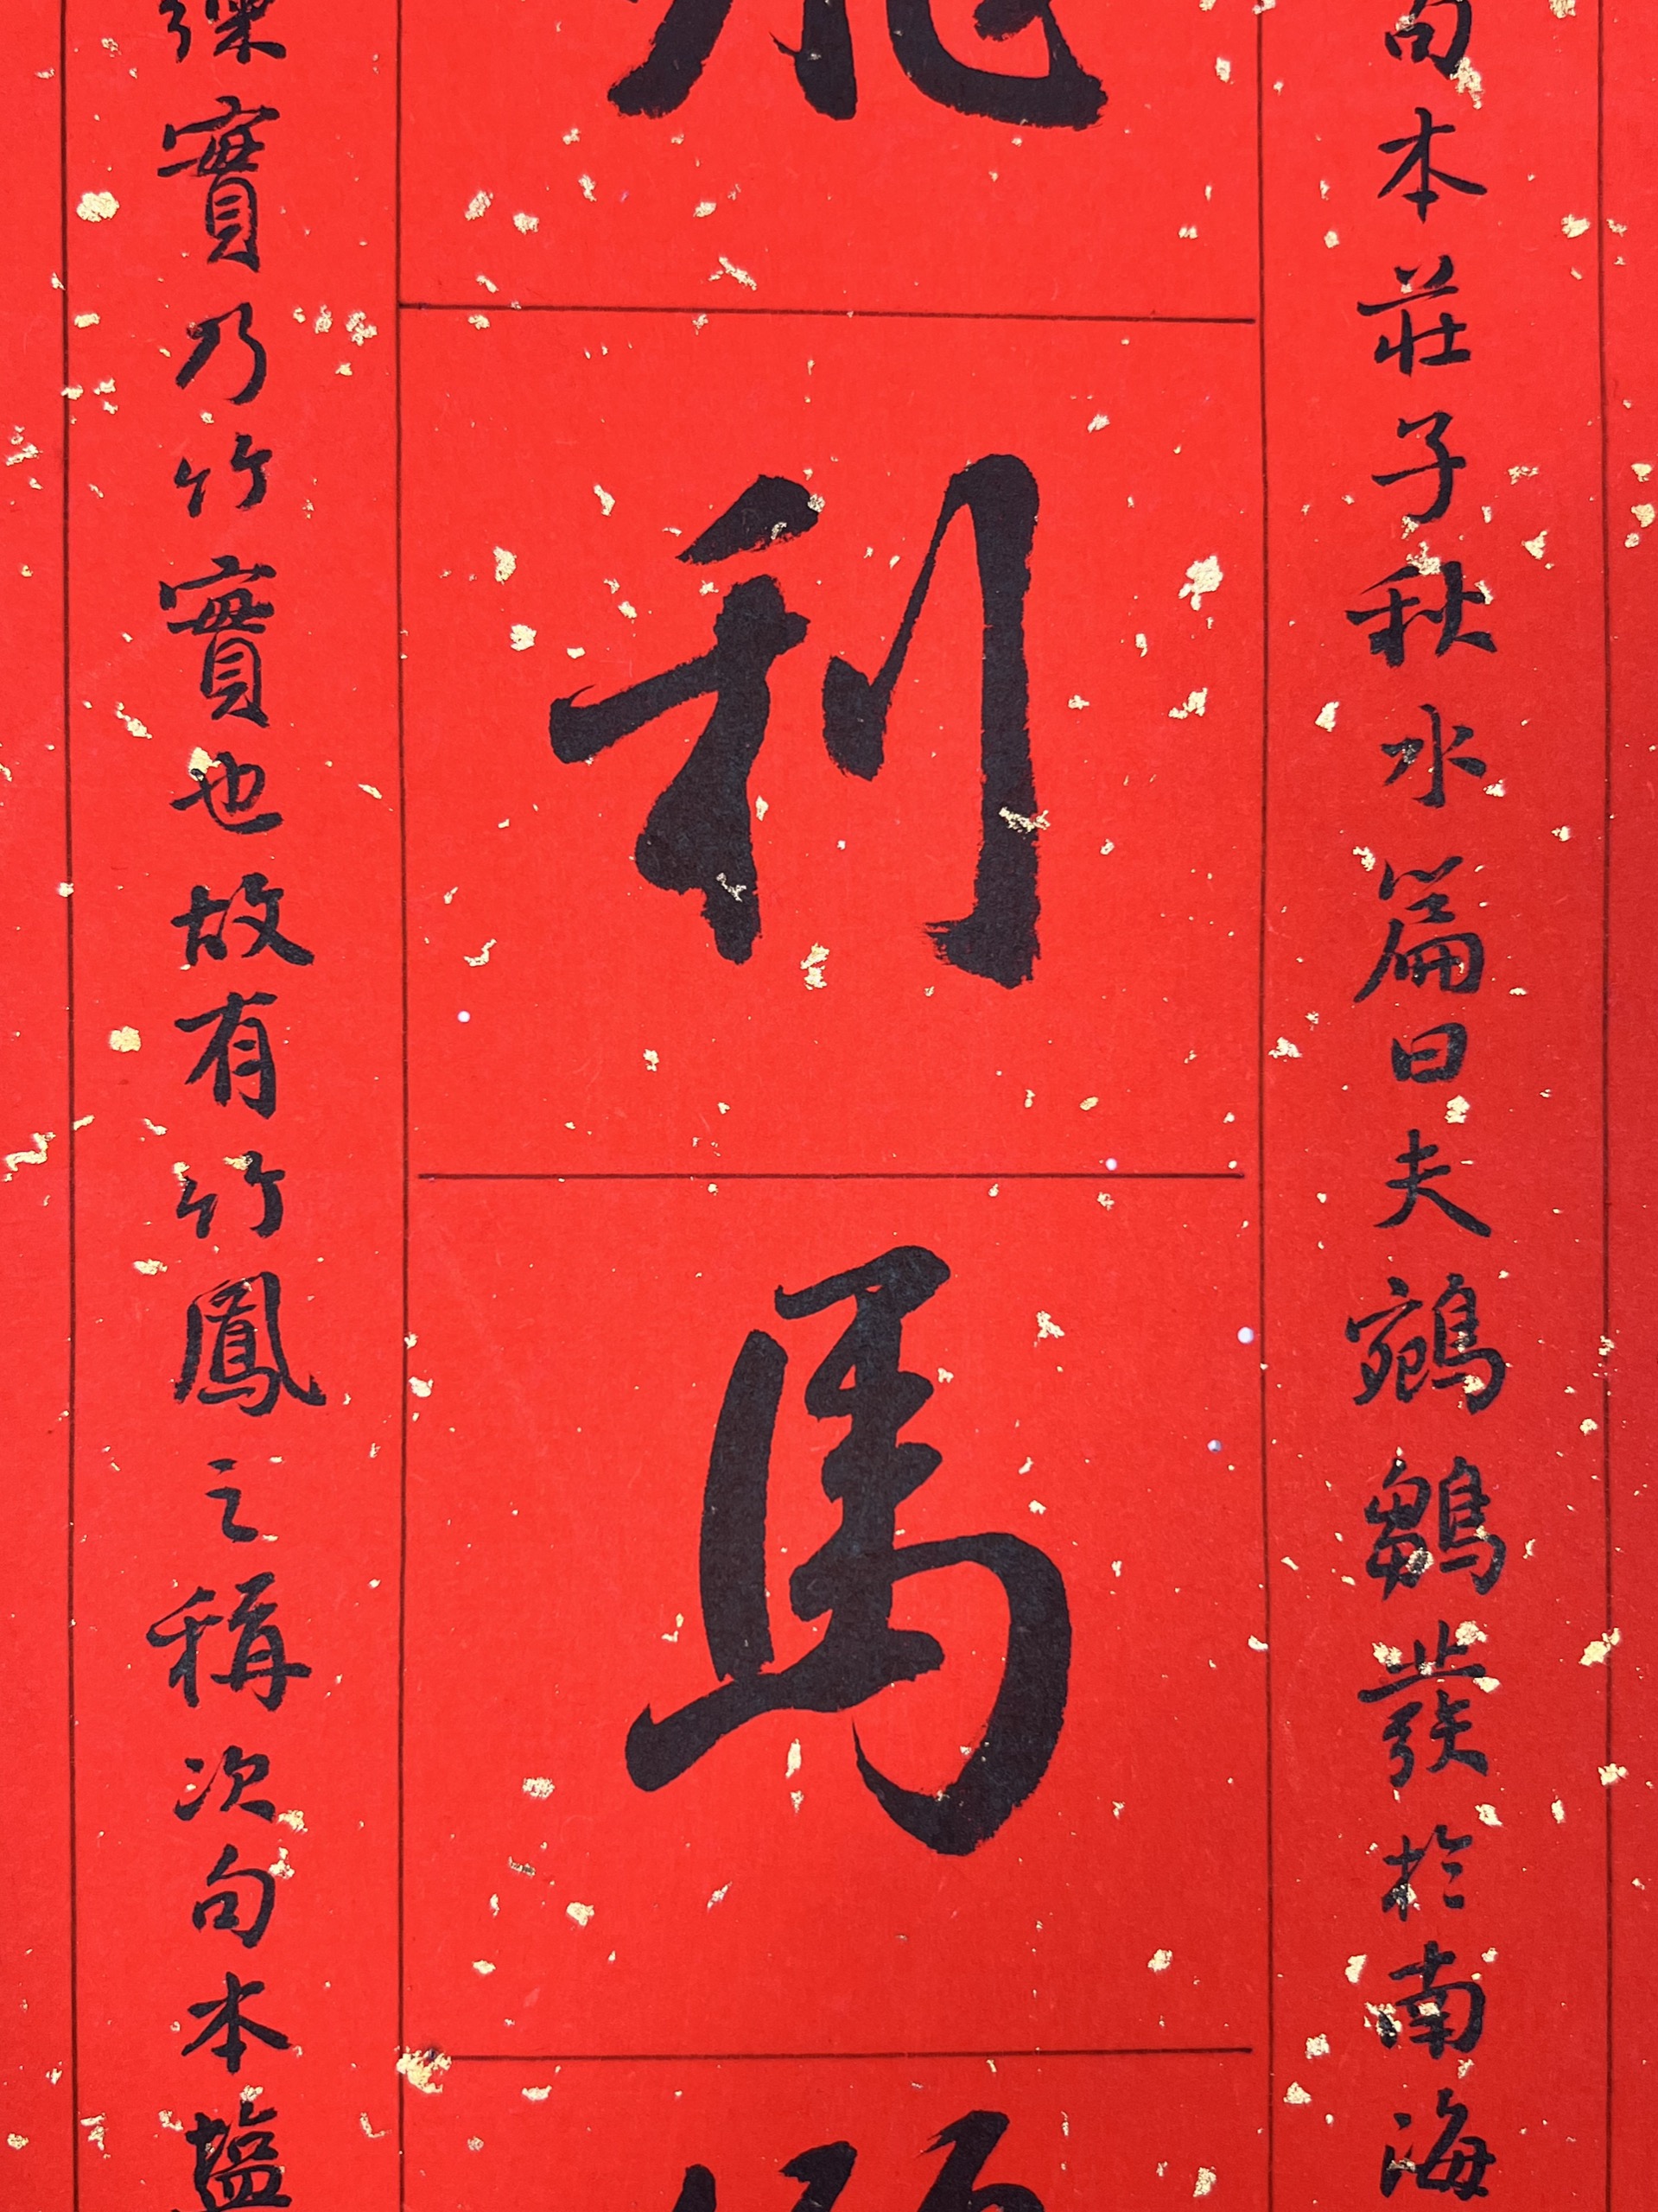 句本莊子秋水篇曰夫鵷鶵發於南海
利馬
練實乃竹實也故有竹鳳之稱次句本鹽